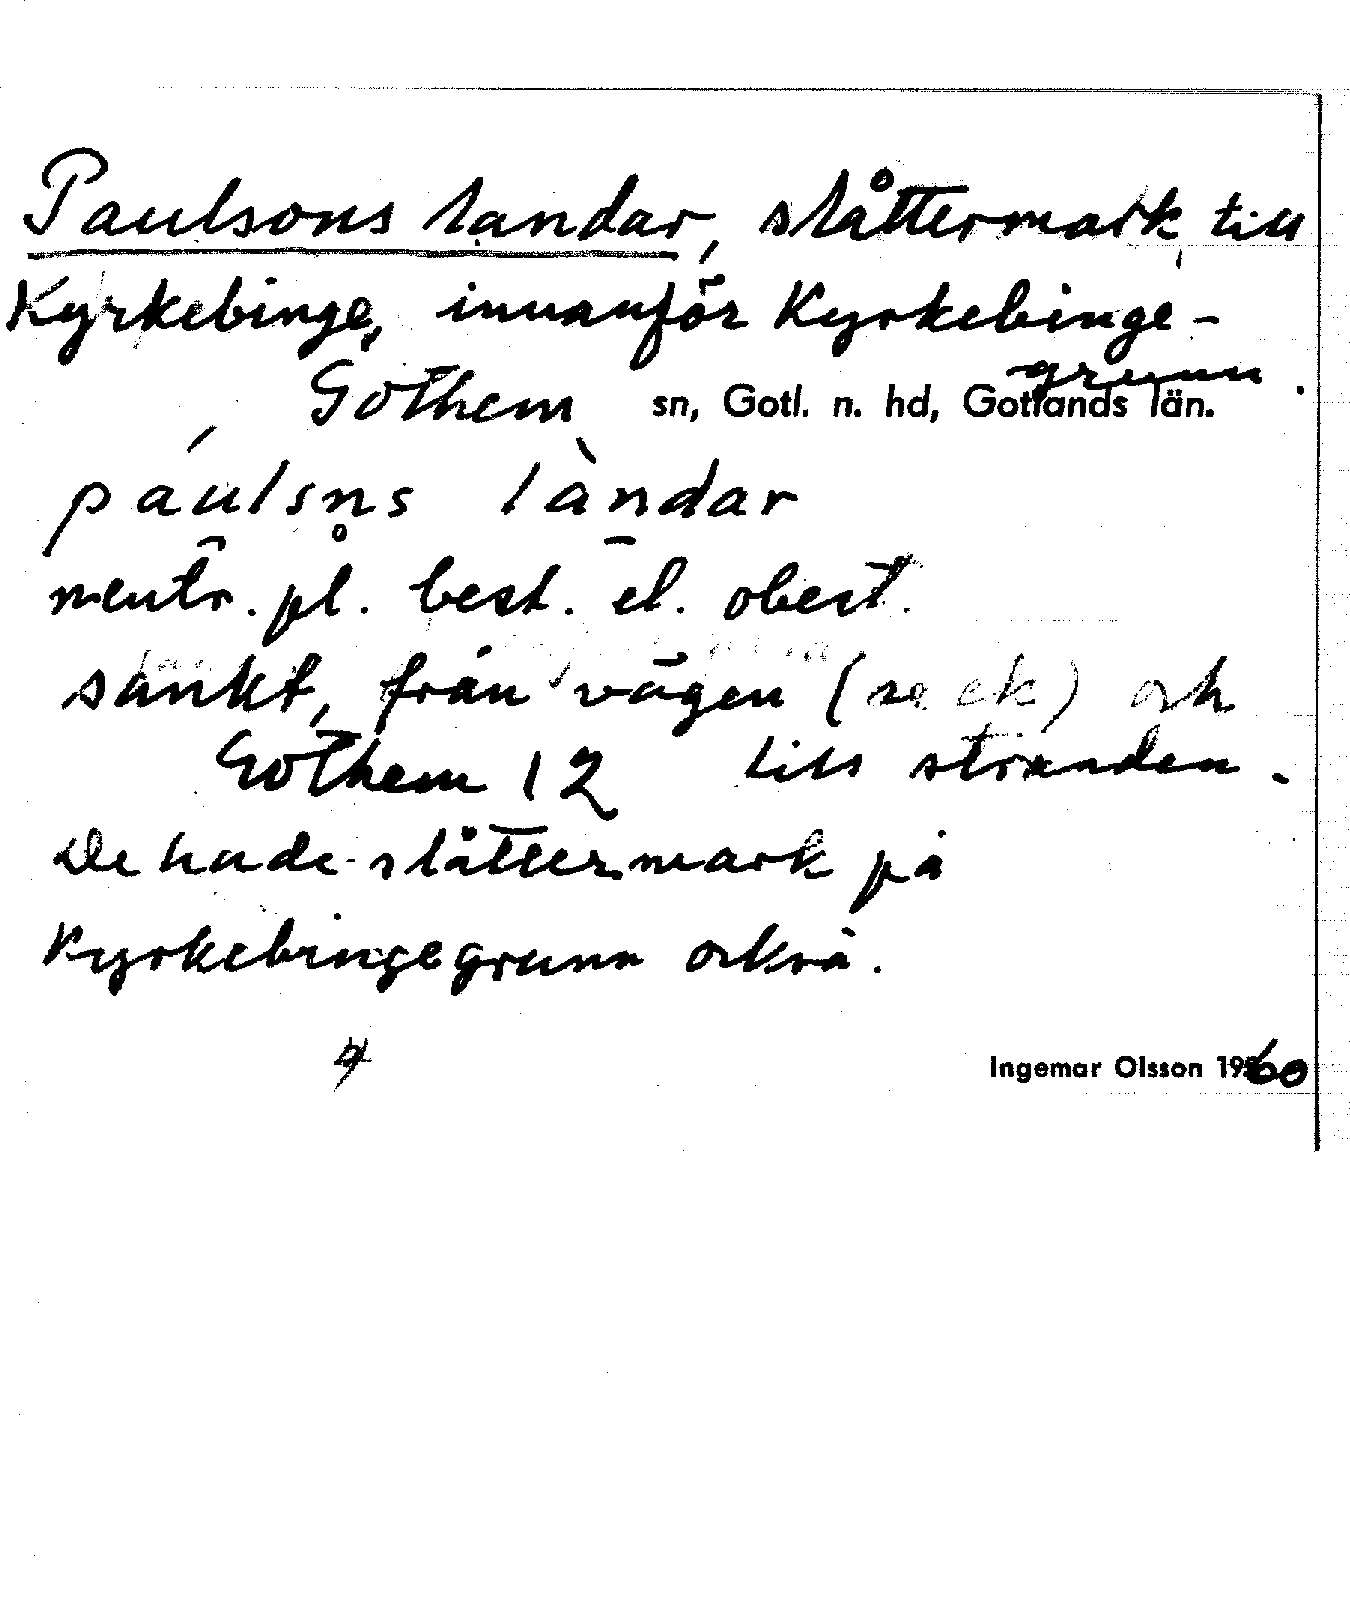 Paulsons landar, slåttermark till
Kyrkebinge, innanför Kyrkebinge-
grunn.
Gothem sn, Gotl. n. hd, Gotlands län.
páulsn̥s làndar
neutr. pl. best. el. obest.
sankt, från vägen (se ek) och
Gothem 12 till stranden.
De hade slåttermark på
Kyrkebingegrunn också.
Ingemar Olsson 1960